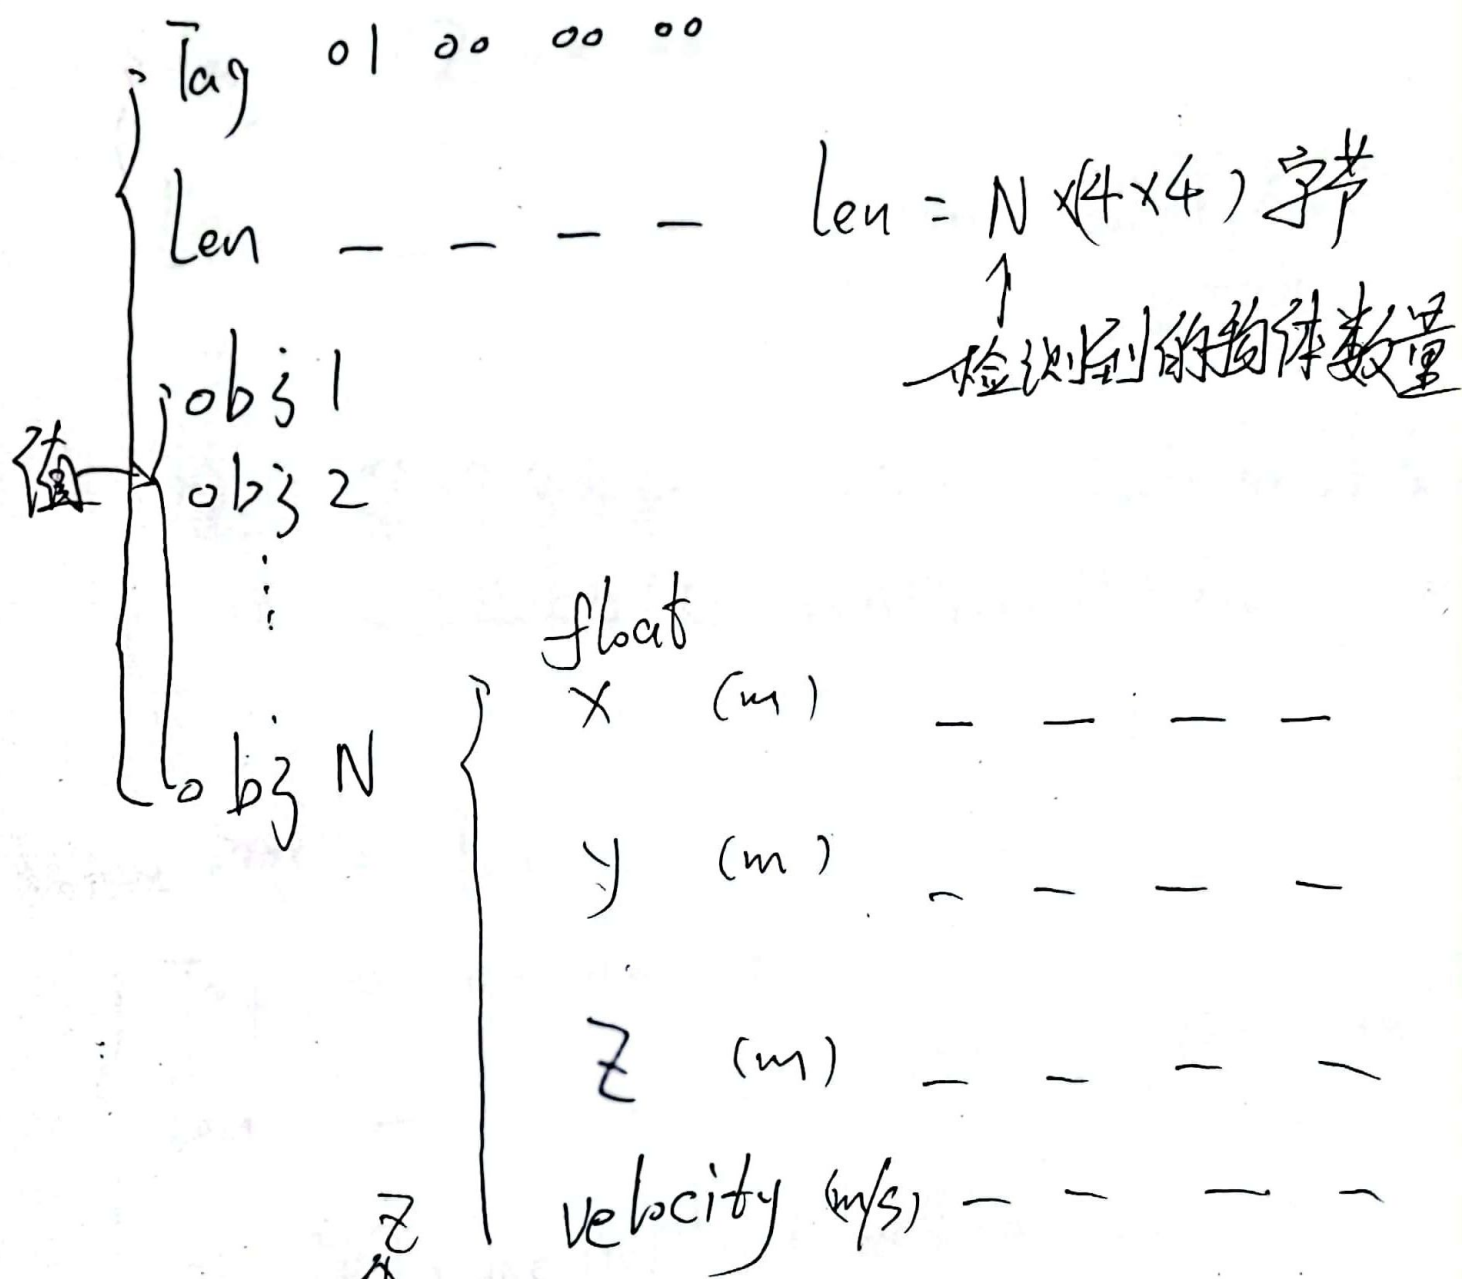 Tag 01 00 00 00
Len — — — — len = N×(4×4)字节
↑
检测到的物体数量
obj 1
值 obj 2
⋮
obj N
float
x (m) — — — —
y (m) — — — —
z (m) — — — —
velocity (m/s) — — — —
z